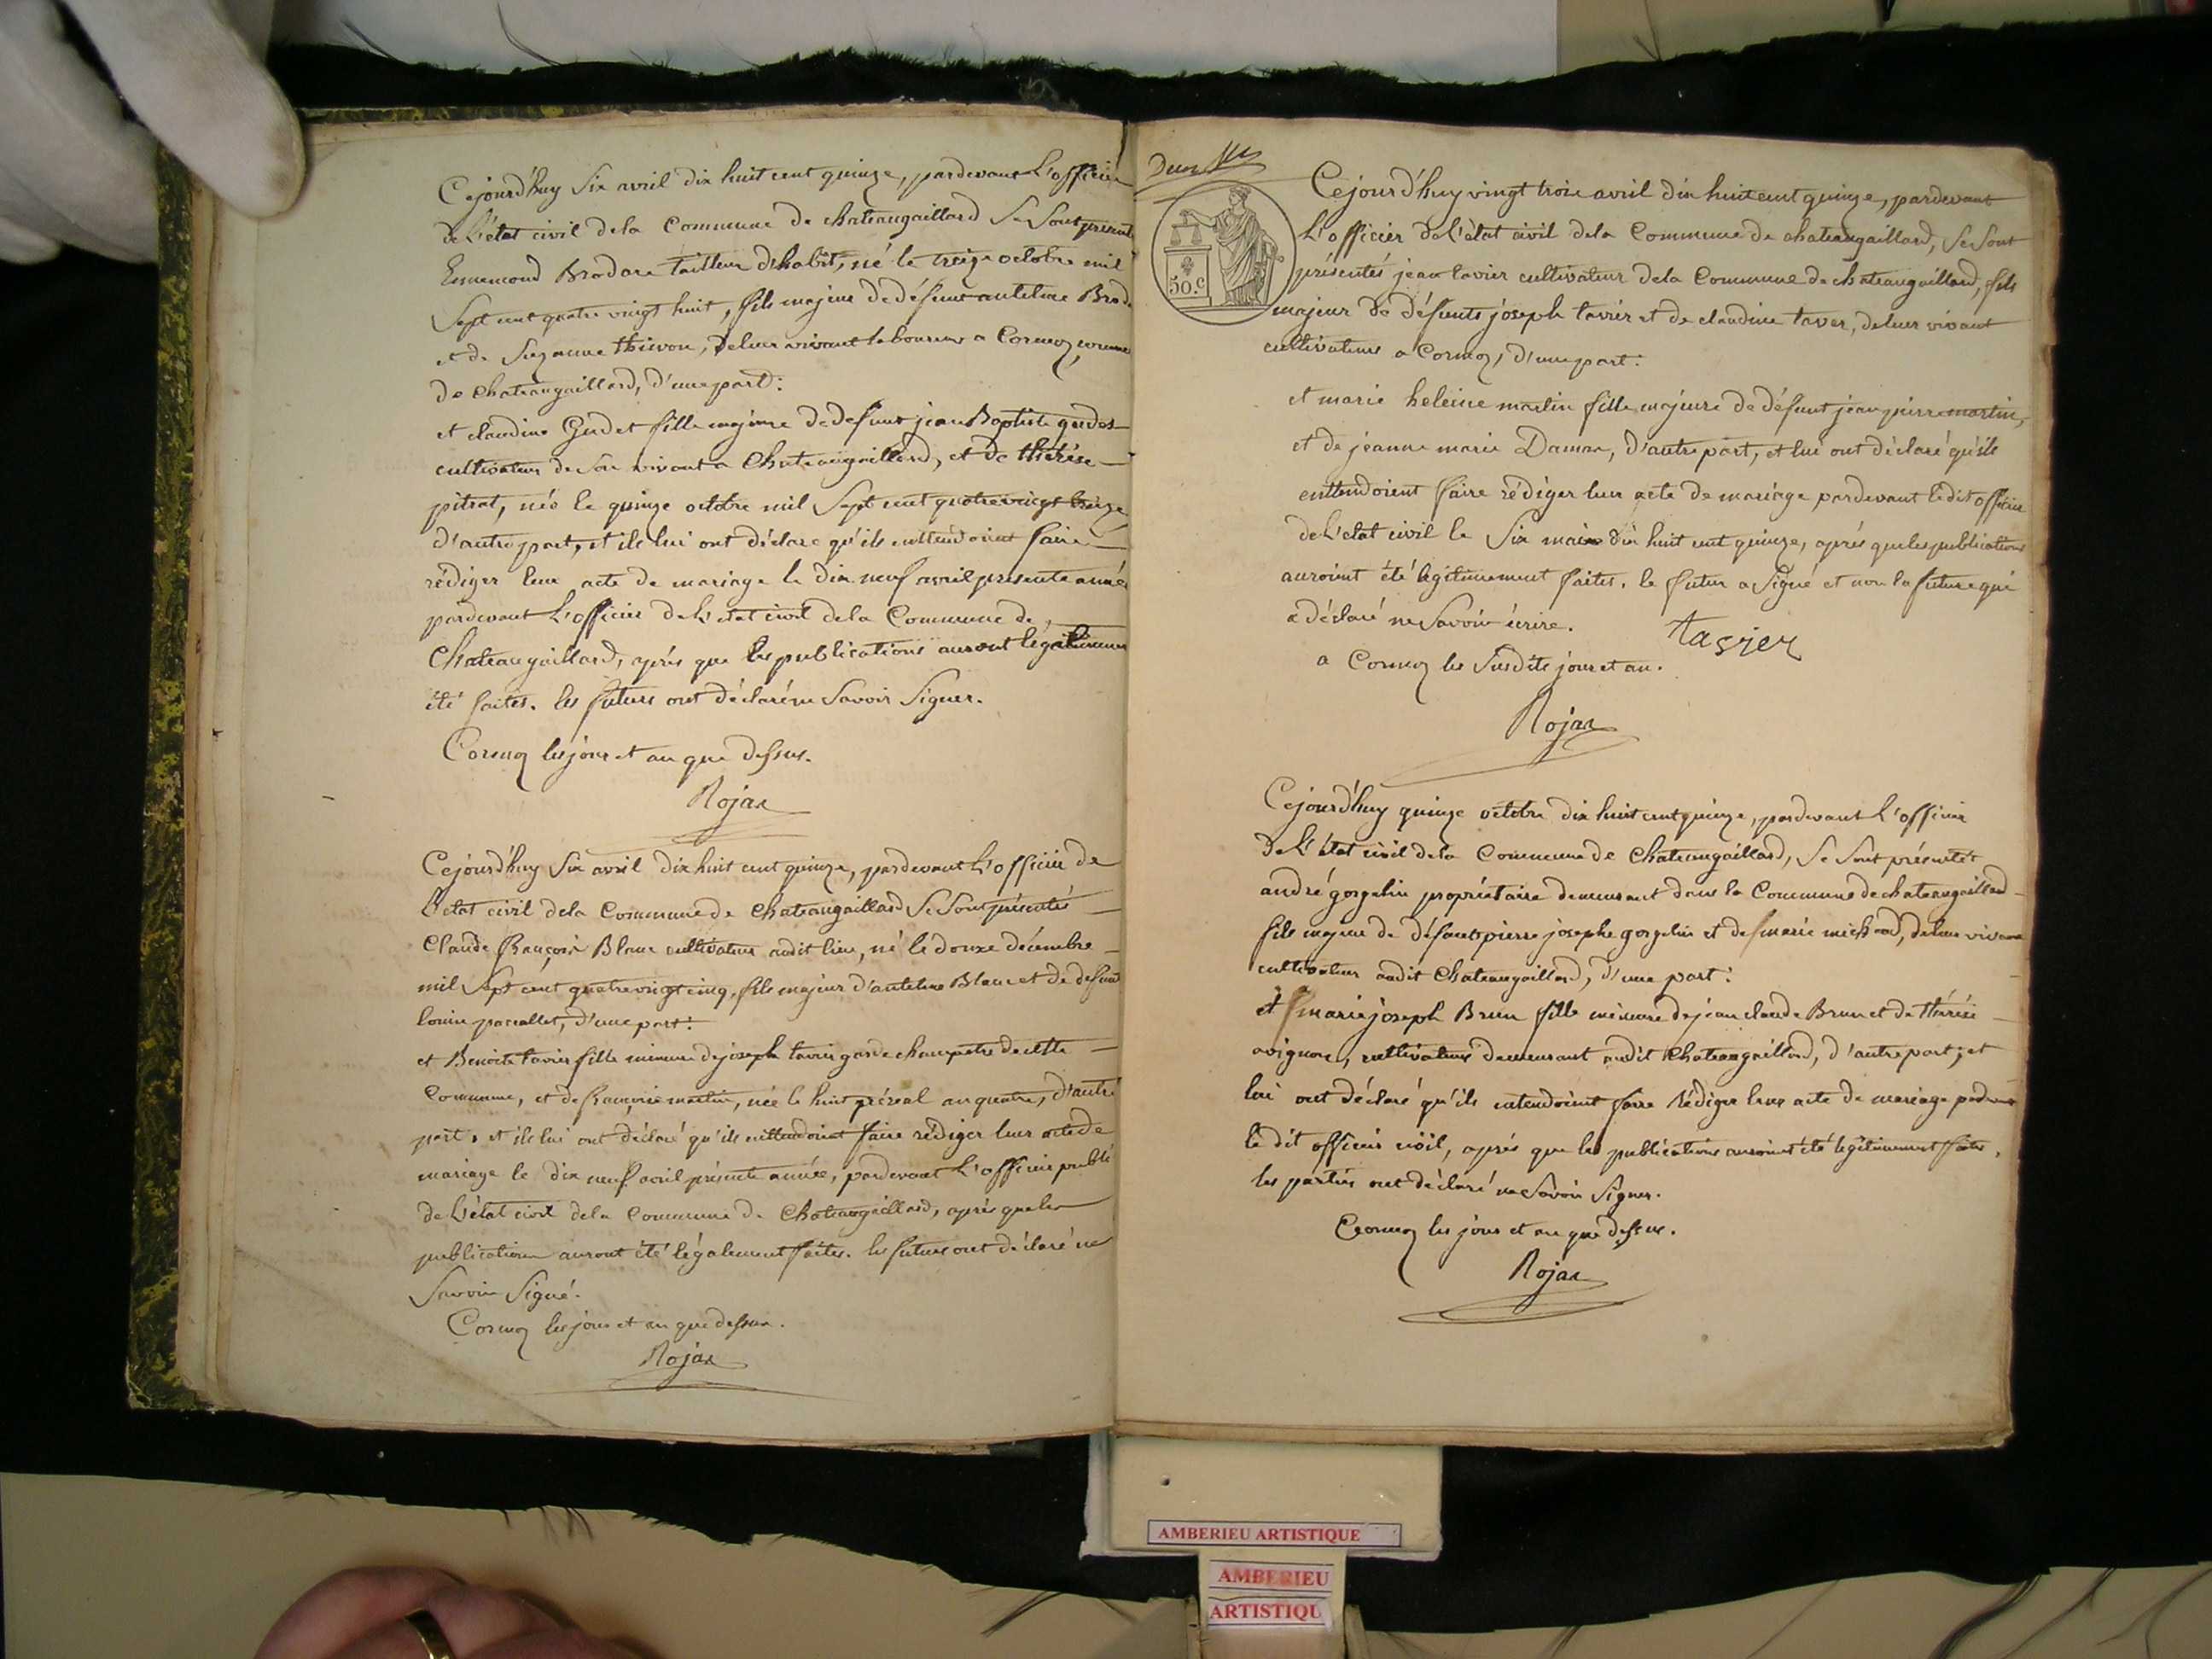 Cejourd'huy Six avril dix huit cent quinze, pardevant L'officier
de L'état civil dela Commune de chateaugaillard Se Sont présent
Ennemond Brodare tailleur d'habit, né le treize octobre mil
Sept cent quatre vingt huit, fils majeur de défunt antelme Brod
et de Suzanne thivon, deleur vivant laboureur a Cormoz, commune
de Chateaugaillard, d'une part:
et claudine Gudet fille majeure de defunt jean Baptiste gudet
cultivateur de Son vivant a Chateaugaillard, et de thérèse
pitrat, née le quinze octobre mil Sept cent quatre vingt treize
d'autre part, et ils lui ont déclaré qu'ils enttendoient faire
rédiger leur acte de mariage le dix neuf avril présente année
pardevant L'officier de L'etat civil dela Commune de
Chateaugaillard, après que les publications auront légitimemen
été faites. les futurs ont déclaré ne Savoir Signer.
Cormoz les jour et an que dessus.
Rojax
Cejourd'huy Six avril dix huit cent quinze, pardevant L'officier de
L'etat civil dela Commune de Chateaugaillard Se Sont présentés
Claude François Blanc cultivateur audit lieu, né le douze décembre
mil Sept cent quatrevingt cinq, fils majeur d'antelme Blanc et de defunt
louise, d'une part:
et Benoite tavier fille mineure de joseph tavier garde champetre de cette
Commune, et de françoise martin, née le huit préreal an quatre, d'autre
part, et ils lui ont déclaré qu'ils enttendoient faire rédiger leur acte de
mariage le dix neuf avril présente année, pardevant L'officier publi
de L'état civil dela Commune de Chateaugaillard, après que les
publications auront été légalement faites. les futurs ont déclaré ne
Savoir Signé.
Cormoz les jour et an que dessus.
Rojax
50.c
Cejourd'huy vingt trois avril dix huit cent quinze, pardevant
L'officier de L'état civil dela Commune de chateaugaillard, Se Sont
présentés jean tavier cultivateur dela Commune de chateaugaillard, fils
majeur de défunts joseph tavier et de claudine taver, deleur vivant
cultivateurs a Cormoz, d'une part:
et marie heleine martin fille majeure de défunt jean pierre martin,
et de jeanne marie Daman, d'autre part, et lui ont déclaré qu'ils
enttendoient faire rédiger leur acte de mariage pardevant ledit officier
de L'etat civil le Six mai dix huit cent quinze, après que les publications
auroient été légitimement faites. le futur a Signé et non la future qui
a déclaré ne Savoir écrire.
tavier
a Cormoz les Susdits jour et an.
Rojax
Cejourd'huy quinze octobre dix huit cent quinze, pardevant L'officier
de L'état civil dela Commune de Chateaugaillard, Se Sont présentés
andré gorgelin propriétaire demeurant dans la Commune de chateaugaillard
fils majeur de défunts pierre josephe gorgelin et de marie michaud, deleur vivant
cultivateur audit Chateaugaillard, d'une part:
et marie joseph Brun fille mineure de jean claude Brun et de thérèse
avignon, cultivateurs demeurant audit Chateaugaillard, d'autre part, et
lui ont déclaré qu'ils entendoient faire rédiger leur acte de mariage
le dit officier civil, après que les publications auroient été légitimement faites,
les parties ont déclaré ne Savoir Signer.
Cormoz les jour et an que dessus.
Rojax
AMBERIEU ARTISTIQUE
AMBERIEU
ARTISTIQU